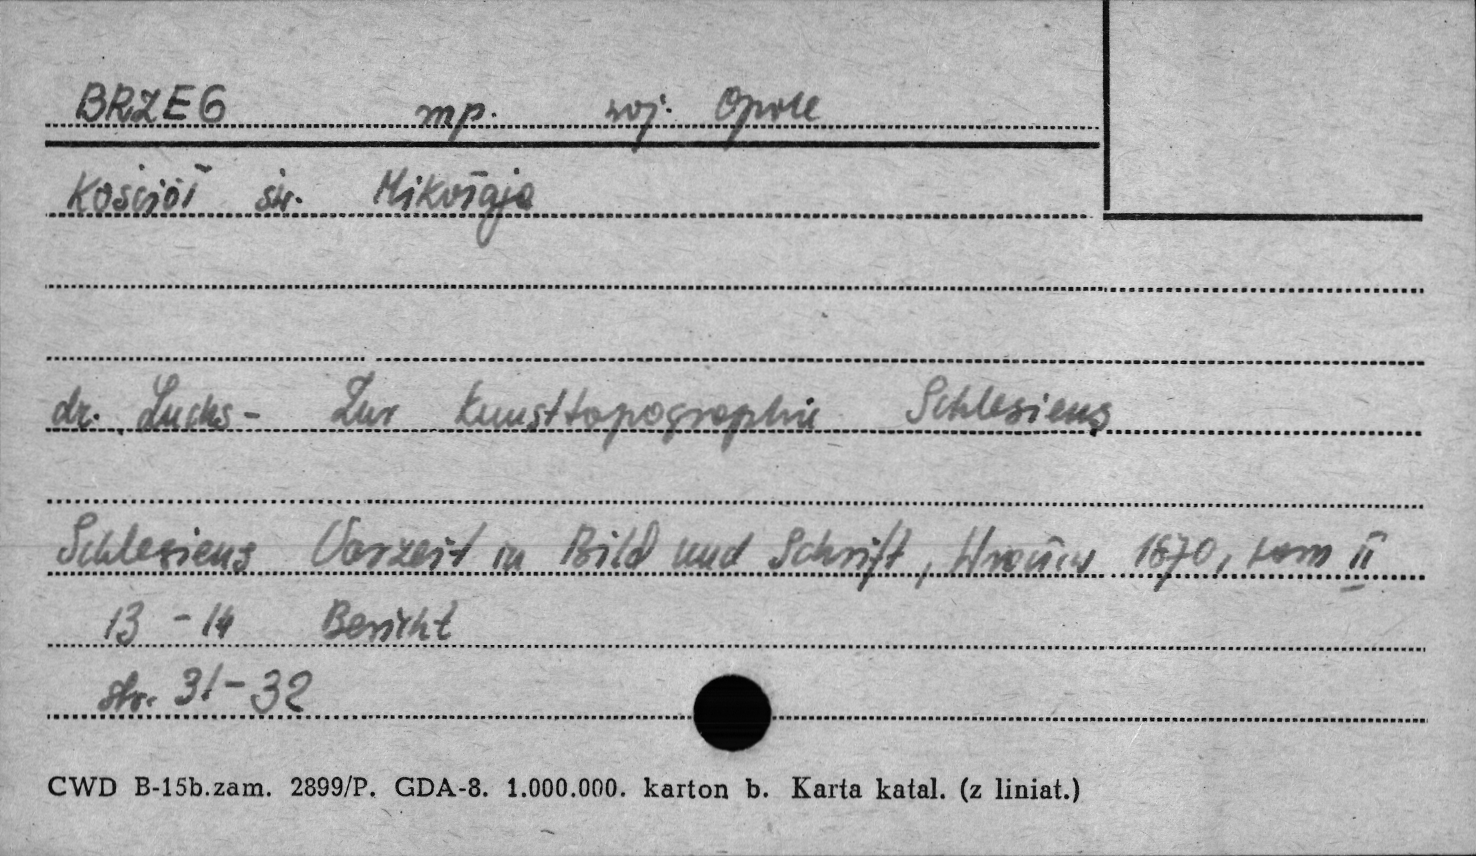 BRZEG mp. woj. Opole
Kościół św. Mikołaja
dr. Luchs - Zur Kunsttopographie Schlesiens
Schlesiens Vorzeit in Bild und Schrift, Wrocław 1870, tom II
13 - 14 Bericht
str. 31-32
CWD B-15b.zam. 2899/P. GDA-8. 1.000.000. karton b. Karta katal. (z liniat.)